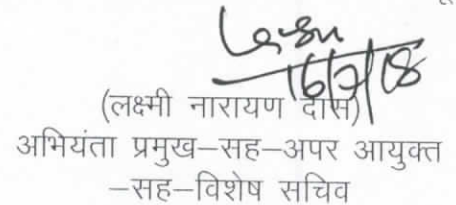 16/2/18
(लक्ष्मी नारायण दास)
अभियंता प्रमुख–सह–अपर आयुक्त
–सह–विशेष सचिव